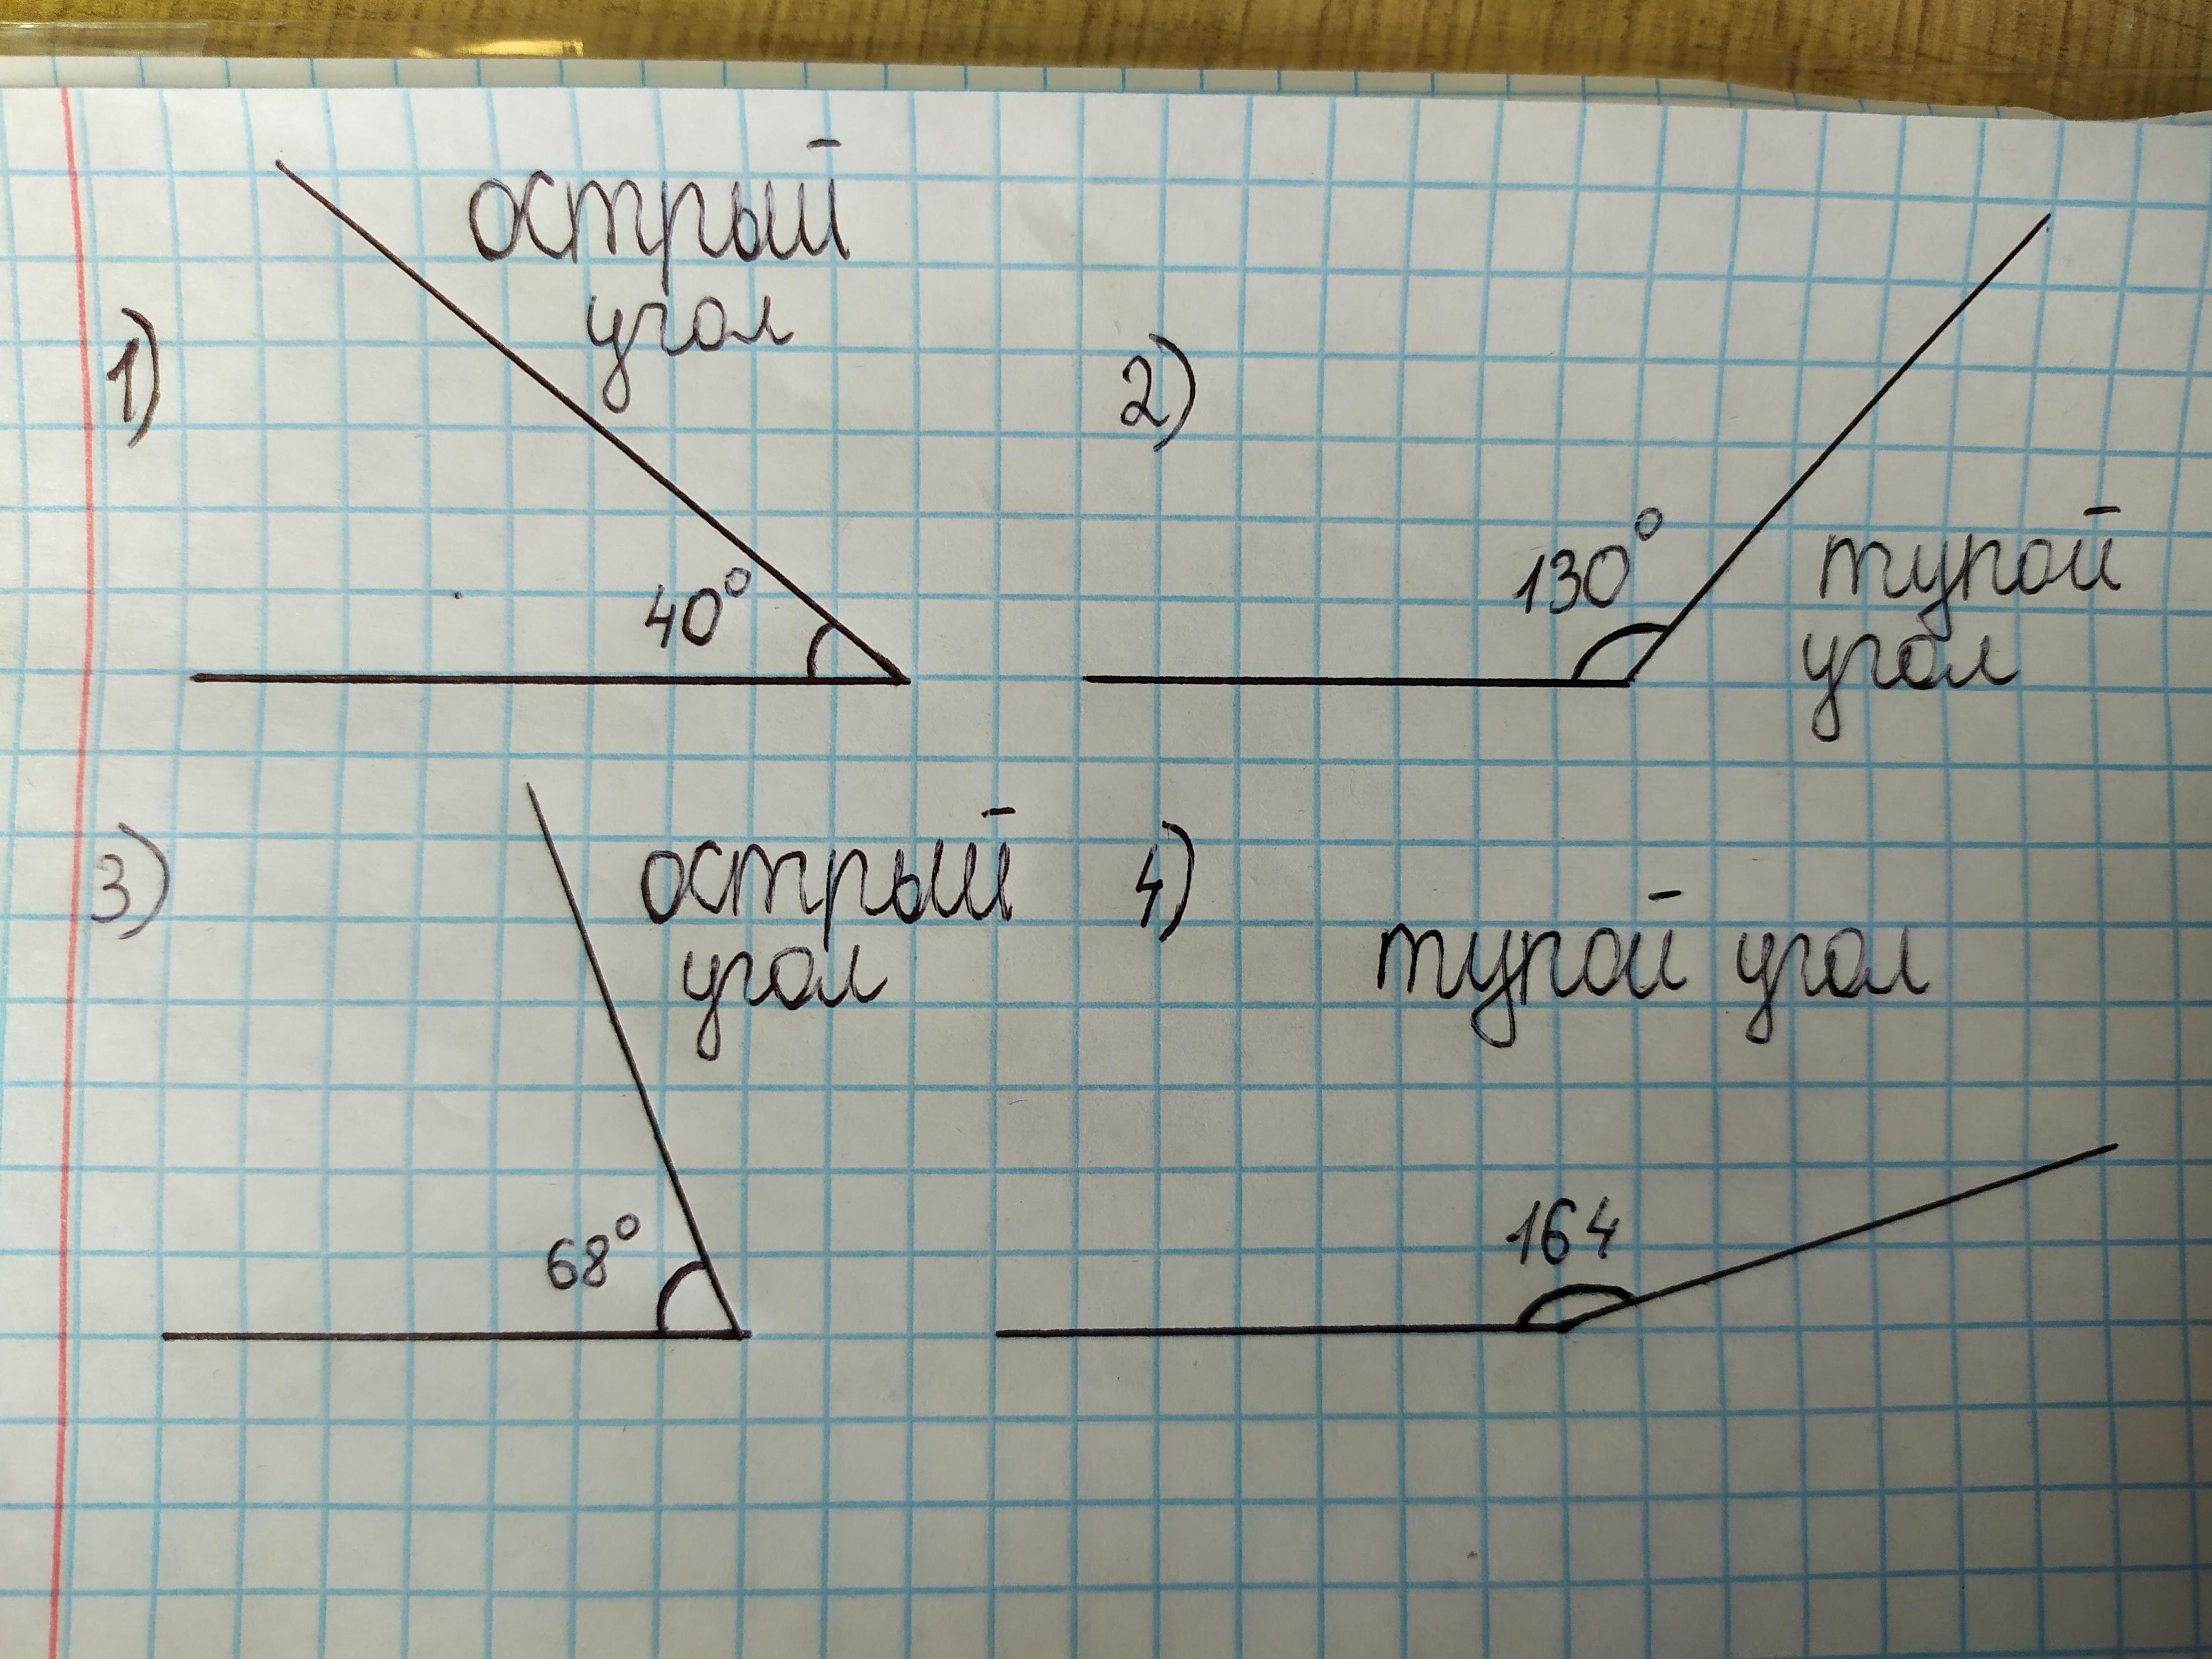 1)
острый
угол
40°
2)
130°
тупой
угол
3)
острый
угол
68°
4)
тупой угол
164